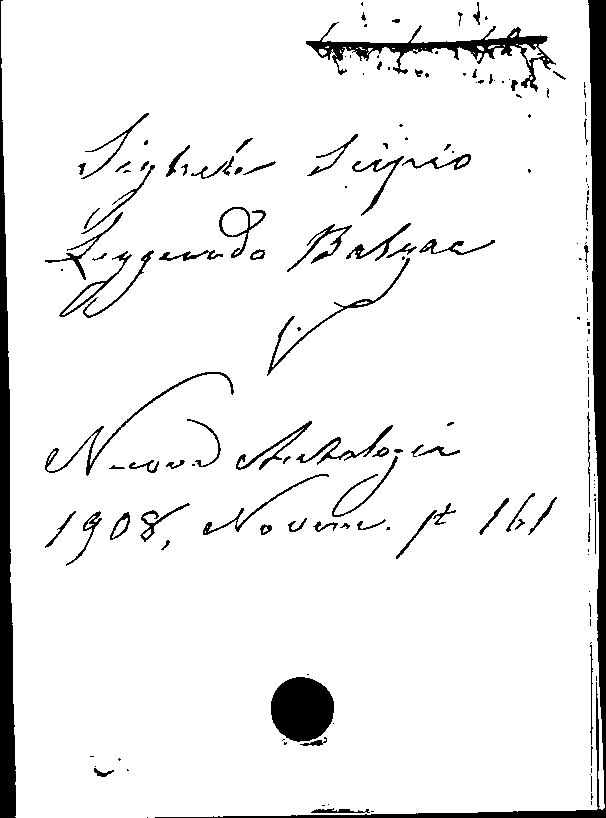 Sighele Scipio
Leggendo Balzac
V.
Nuova Antologia
1908, Novem. pt 161